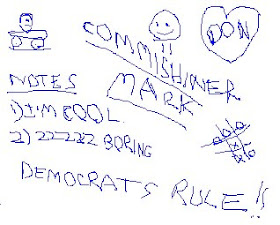 DON
COMMISHINER
MARK
NOTES
1) I'M COOL
2) ZZ-ZZZ BORING
DEMOCRATS RULE!!